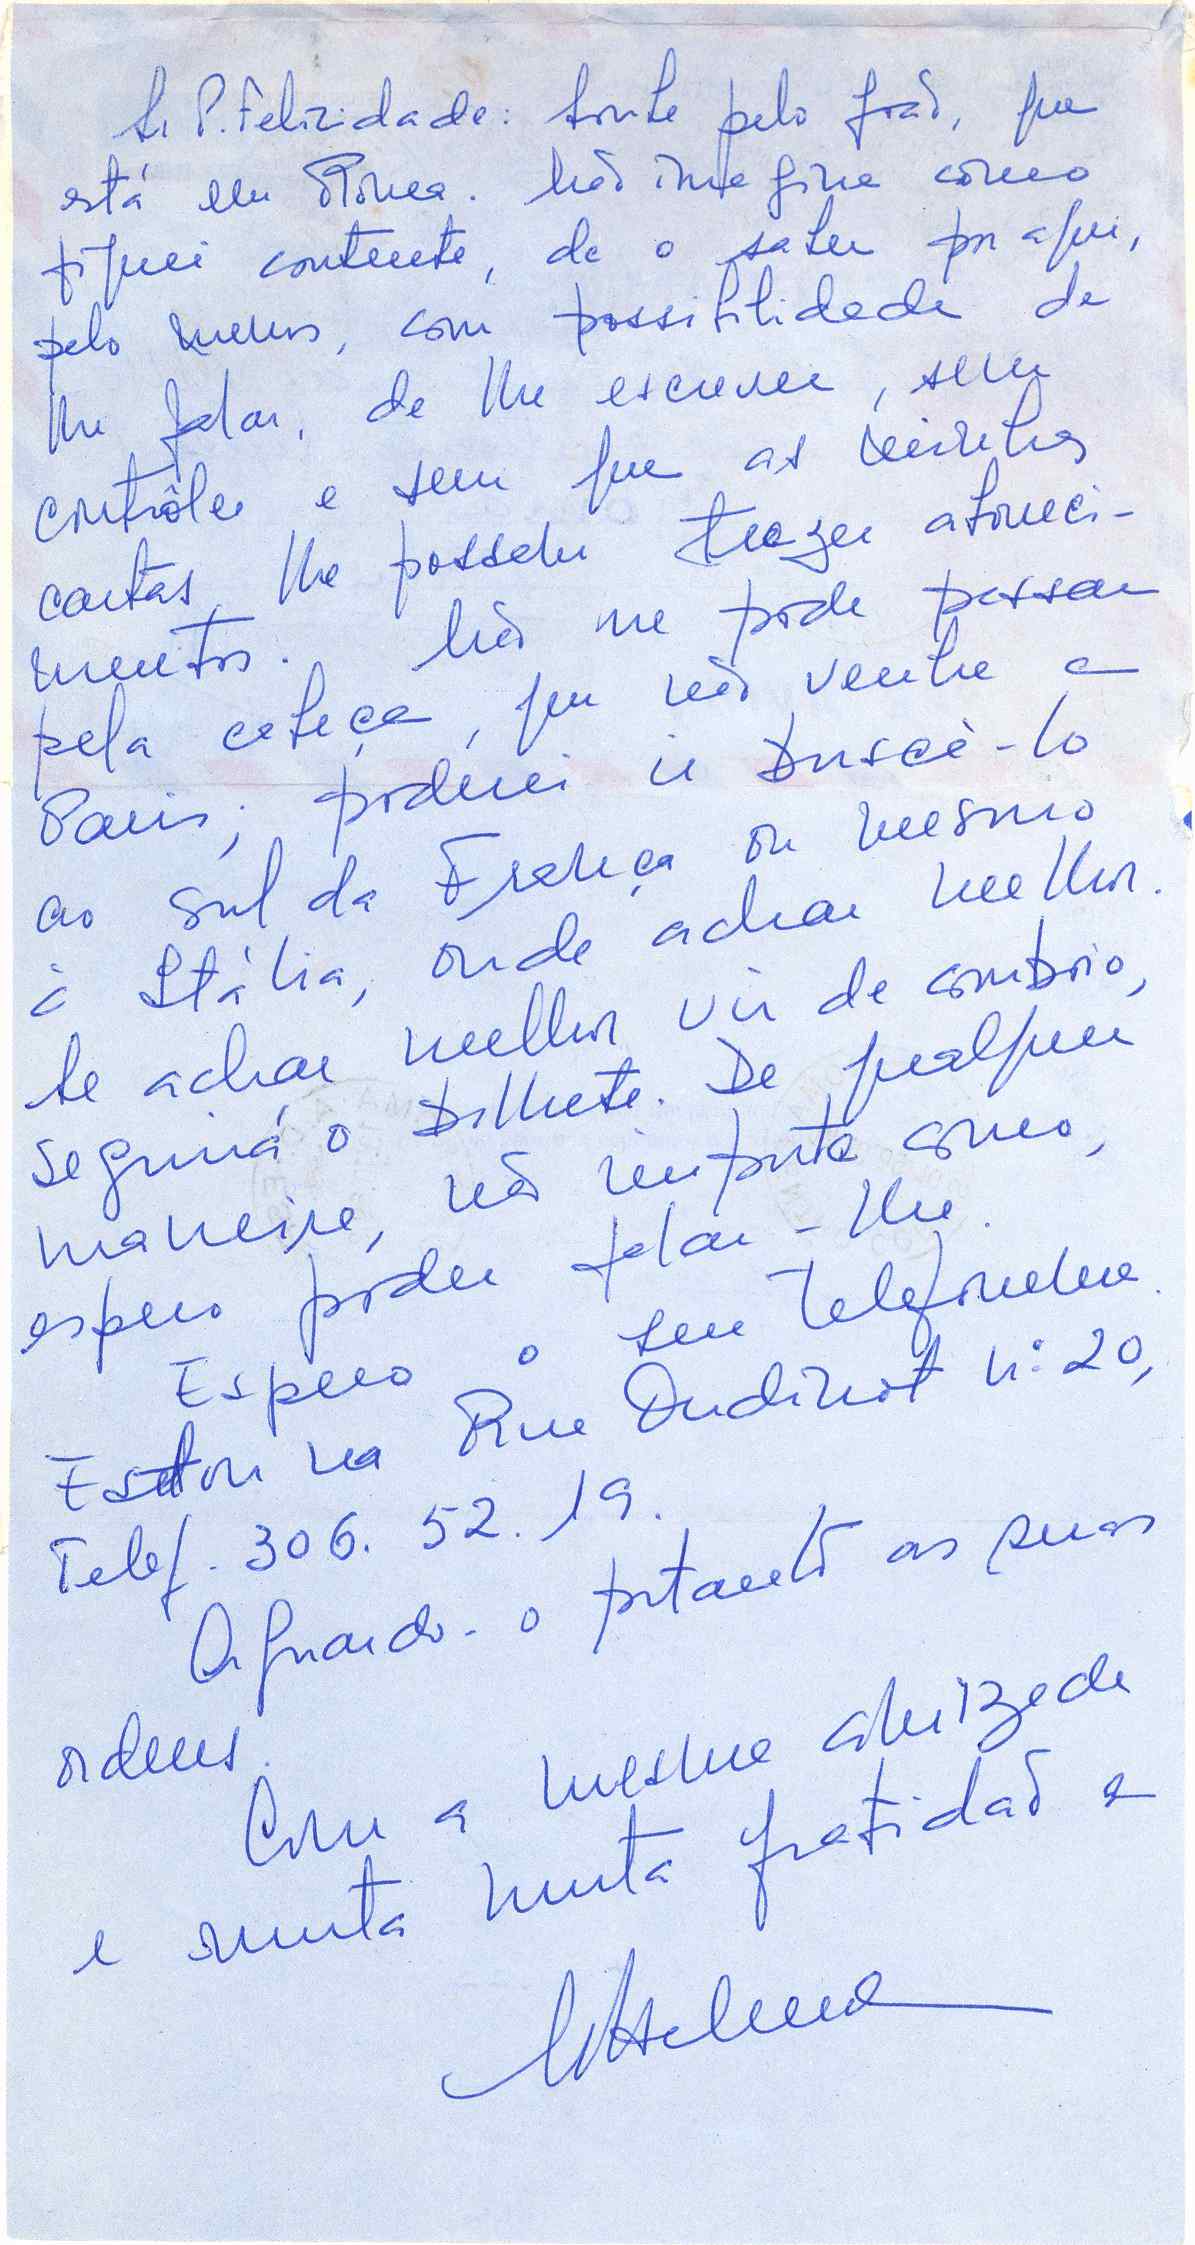 Sr. P. Felizidade: soube pelo João, que
está em Roma. Não imagina como
fiquei contente, de o saber por aqui,
pelo menos, com possibilidade de
lhe falar, de lhe escrever, sem
contrôle e sem que as minhas
cartas lhe possam trazer aborreci-
mentos. Não me pode passar
pela cabeça, que não venha a
Paris; poderei ir buscá-lo
ao sul da França ou mesmo
à Itália, onde achar melhor.
Se achar melhor vir de comboio,
seguirá o bilhete. De qualquer
maneira, não importa como,
espero poder falar-lhe.
Espero o seu telefonema.
Estou na Rue Oudinot nº 20,
Telef. 306. 52. 19.
Aguardo-o portanto as suas
ordens.
Com a mesma amizade
e muita muita gratidão a